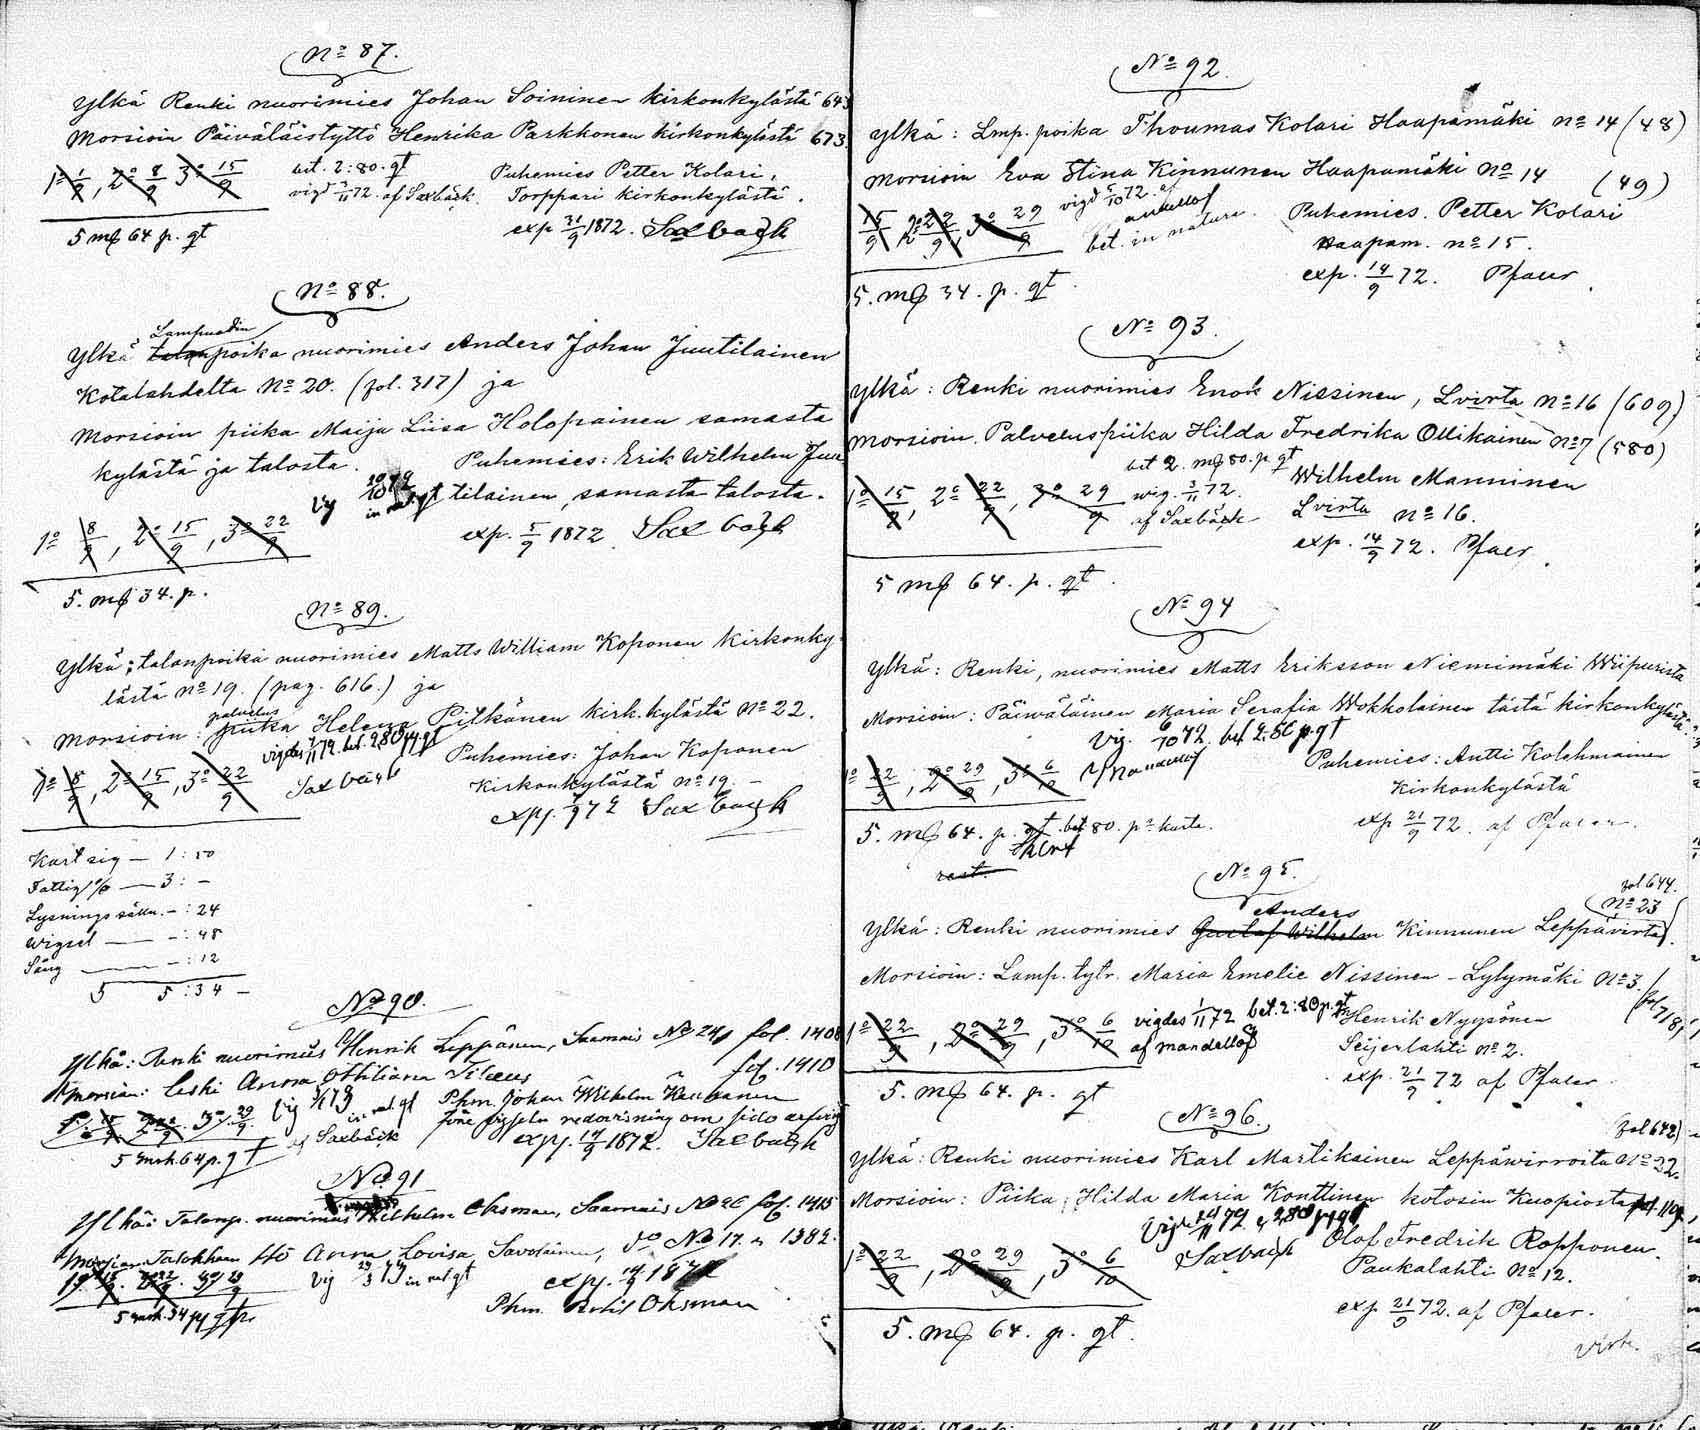 No 87.
Ylkä Renki nuorimies Johan Soininen kirkonkylästä 643
Morsioin Päiväläistyttö Henrika Parkkonen kirkonkylästä 673
1o 1/9, 2o 8/9 3o 15/9
bet. 2:80. qt
vigd 3/11 72. af Saxbäck.
Puhemies Petter Kolari,
Torppari kirkonkylästä.
5 mk 64 p. qt
exp 31/9 1872. Saxbäck
No 88.
Lampuodin
Ylkä talanpoika nuorimies Anders Johan Juutilainen
Kotalahdelta No 20. (fol. 317) ja
Morsioin piika Maija Liisa Holopainen samasta
kylästä ja talosta.
Puhemies: Erik Wilhelm Juu
tilainen, samasta talosta.
1o 8/9, 2o 15/9, 3o 22/9
exp. 5/9 1872. Saxbäck
5. mk 34. p.
No 89.
Ylkä: talanpoika nuorimies Matts William Koponen Kirkonky-
lästä no 19. (pag. 616.) ja
palvelus
Morsioin: piika Helena Pitkänen kirk.kylästä No 22.
1o 8/9, 2o 15/9, 3o 22/9
Saxbäck
Puhemies: Johan Koponen
Kirkonkylästä no 19. –
exp. 7/9 72 Saxbäck
Kart sig – 1:50
Fattig % – 3: –
Lysningssälln. – :24
Wigsel – – :48
Sång – – :12
5 5:34 –
No 90.
Ylkä: Renki nuorimies Henrik Leppänen, Saamais No 24, fol. 1408
Morsian: leski Anna Ottiliana fol. 1410
Phm. Johan Wilhelm
redovisning om
af Saxbäck
exp. 14/9 1872. Saxbäck
5 mrk. 64 p. qt
No 91
Ylkä: Talanp. nuorimies Wilhelm Oksman, Saamais No 26 fol. 1415
Morsian Anna Lovisa Savolainen, do No 17. " 1382.
vig 29/3 73 in nat. qt
exp. 14/9 1872
5 mrk. 34 p.
Phm. Oksman
No 92.
Ylkä: Lmp. poika Thoumas Kolari Haapamäki no 14 (48)
Morsioin Eva Stina Kinnunen Haapamäki No 14 (49)
15/9 2o 22/9, 3o 29/9
vigd 5/10 72. af
Mandellof
bet. in natura.
Puhemies. Petter Kolari
Haapam. no 15.
5. mk 34. p. qt.
exp. 14/9 72. Pfaler.
No 93.
Ylkä: Renki nuorimies Enok Nissinen, Lvirta no 16 (609)
Morsioin. Palveluspiika Hilda Fredrika Ollikainen no 7 (580)
1o 15/9, 2o 22/9, 3o 29/9
bet 2. mk 80. p. qt
wig. 3/11 72.
af Saxbäck
Wilhelm Manninen
Lvirta no 16.
exp. 14/9 72. Pfaler.
5 mk 64. p. qt.
No 94
Ylkä: Renki, nuorimies Matts Eriksson Niemimäki Wiipurista
Morsioin: Päiwäläinen Maria Serafia Wokkolainen tästä kirkonkylästä.
Vig. 6/10 72. bet 2:80 p. qt
Mandellof
1o 22/9, 2o 29/9, 3o 6/10
Puhemies: Antti Kolehmainen
Kirkonkylästä
5. mk 64. p. qt. bet 80. po karta.
rest.
exp 21/9 72. af Pfaler.
No 95.
fol 644.
No 23
Anders
Ylkä: Renki nuorimies Gustaf Wilhelm Kinnunen Leppävirta.
Morsioin: Lamp. tytr. Maria Emelie Nissinen – Lylymäki No 3.
(fol 718)
1o 22/9, 2o 29/9, 3o 6/10
vigdes 1/11 72 bet. 2:80 p. qt
af Mandellof
Henrik Nyyssönen
Seijerlahti no 2.
exp. 21/9 72 af Pfaler.
5. mk 64. p. qt
No 96.
(fol 642)
Ylkä: Renki nuorimies Karl Martikainen Leppäwirroita No 22.
Morsioin: Piika, Hilda Maria Konttinen kotosin Kuopiosta
1o 22/9, 2o 29/9, 3o 6/10
Saxbäck
Olof Fredrik Ropponen.
Paukalahti No 12.
exp 21/9 72. af Pfaler.
5. mk 64. p. qt.